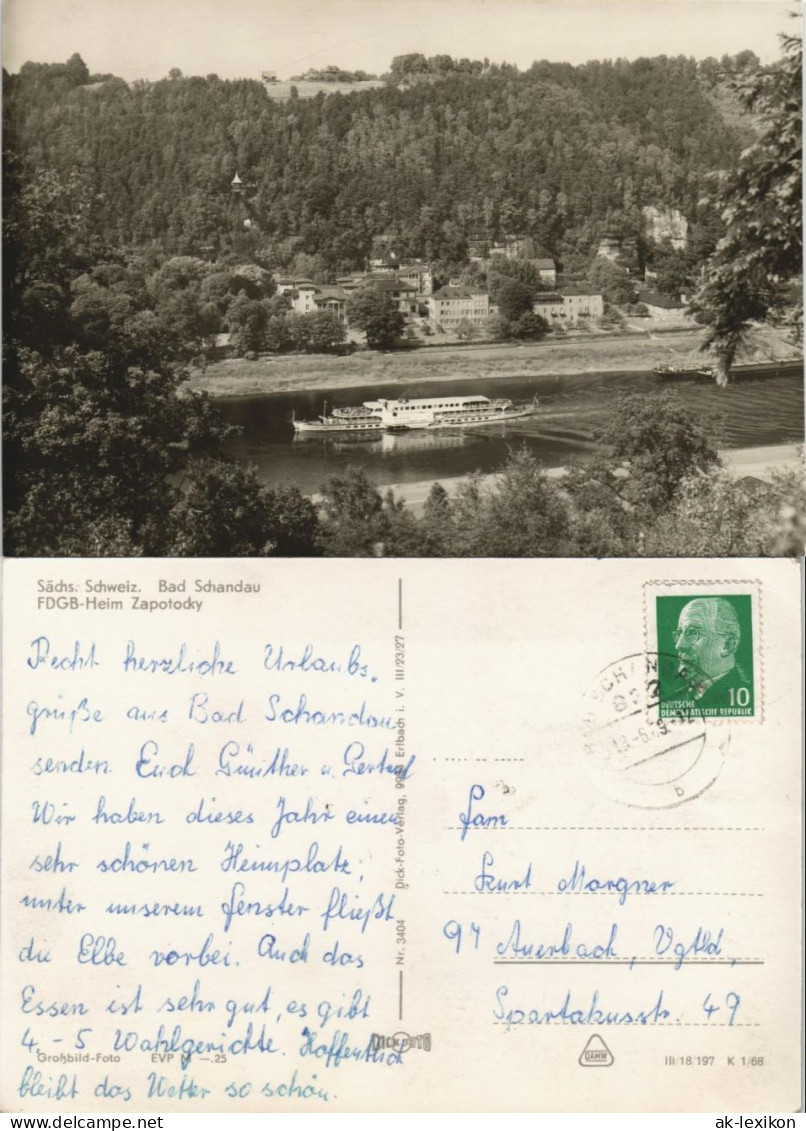 Sächs. Schweiz. Bad Schandau
FDGB-Heim Zapotocky
Recht herzliche Urlaubs-
grüße aus Bad Schandau
senden Euch Günther u. Gertrud
Wir haben dieses Jahr einen
sehr schönen Heimplatz;
unter unserem Fenster fließt
die Elbe vorbei. Auch das
Essen ist sehr gut, es gibt
4 - 5 Wahlgerichte. Hoffentlich
bleibt das Wetter so schön.
Großbild-Foto EVP M —.25
Nr. 3404 Dick-Foto-Verlag, Erlbach i. V. III/23/27
DICK FOTO
DEUTSCHE
DEMOKRATISCHE REPUBLIK
10
BAD SCHANDAU
b
Fam
Kurt Morgner
97 Auerbach, Vgtld,
Spartakusstr. 49
DAMW
III/18/197 K 1/68
www.ansichtskarten-center.de
ak-lexikon